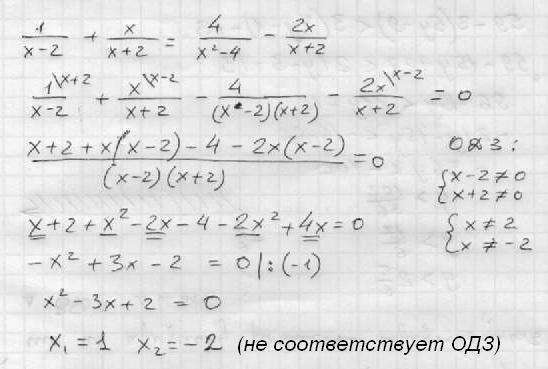 1/(x-2) + x/(x+2) = 4/(x²-4) - 2x/(x+2)
1\x+2/(x-2) + x\x-2/(x+2) - 4/((x-2)(x+2)) - 2x\x-2/(x+2) = 0
(x+2+x(x-2)-4-2x(x-2))/((x-2)(x+2)) = 0
ОДЗ:
{x-2≠0
{x+2≠0
x+2+x²-2x-4-2x²+4x=0
{x≠2
{x≠-2
-x²+3x-2 = 0 |:(-1)
x²-3x+2 = 0
x₁=1 x₂=-2 (не соответствует ОДЗ)